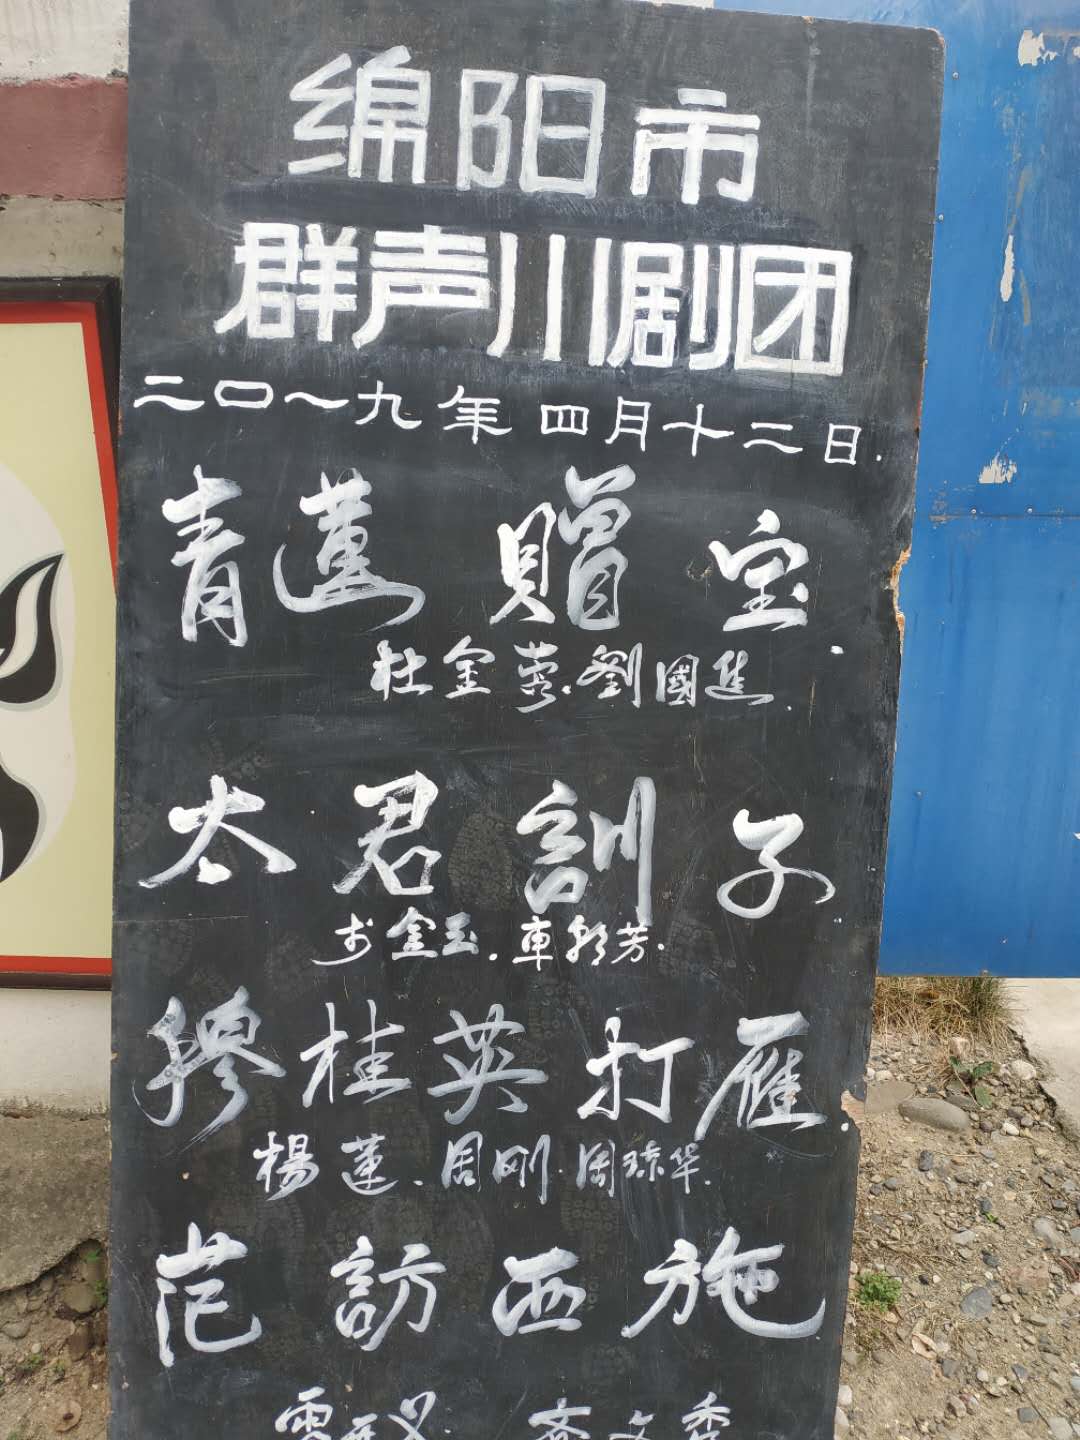 绵阳市
群声川剧团
二〇一九年四月十二日.
青蓮贈宝.
杜金蓉.劉國進.
太君訓子
金玉.車 芳.
穆桂英打雁.
楊蓮.周刚.周琼华.
范訪西施
雲 齐文秀